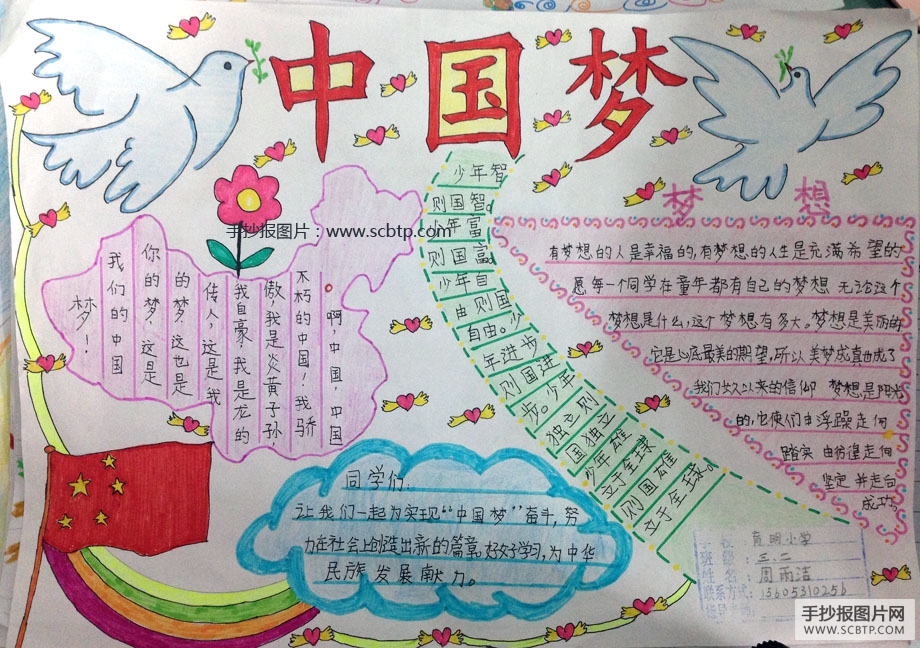 中国梦
手抄报图片：www.scbtp.com
啊,中国,中国
不朽的中国!我骄
傲,我是炎黄子孙,
我自豪,我是龙的
传人,这是我
的梦,这也是
你的梦,这是
我们的中国
梦!
少年智
则国智
少年富
则国富
少年自
由则国
自由。少
年进步
则国进
步。少年
独立则
国独立
少年雄
立于全球
则国雄
立于全球。
梦想
有梦想的人是幸福的,有梦想的人生是充满希望的
愿每一个同学在童年都有自己的梦想 无论这个
梦想是什么,这个梦想有多大。梦想是美丽的
它是心底最美的期望,所以美梦成真也成了
我们久以来的信仰 梦想是阳光
的,它使人们由浮躁走向
踏实 由彷徨走向
坚定 并走向
成功
同学们:
让我们一起为实现“中国梦”奋斗,努
力在社会上创造出新的篇章,好好学习,为中华
民族发展献力。
小学
班级:三.二
姓名:周雨洁
联系方式:13605310256
手抄报图片网
WWW.SCBTP.COM